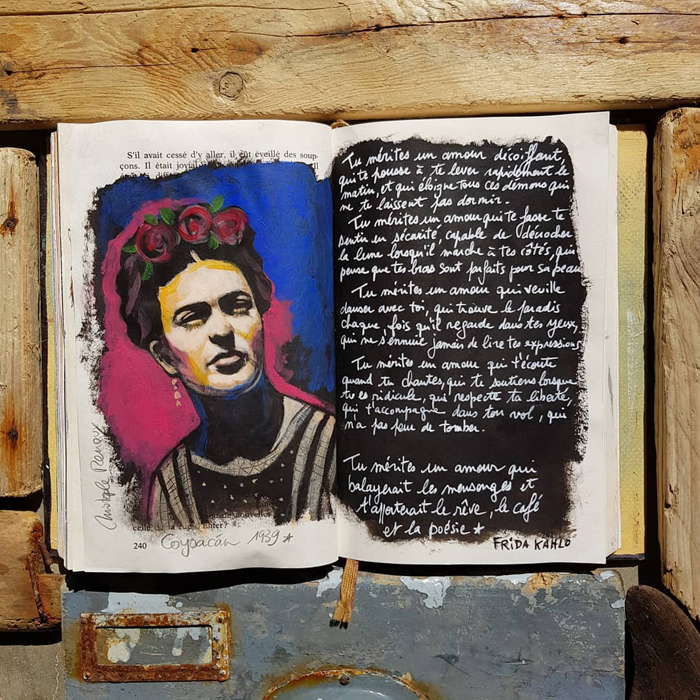 S'il avait cessé d'y aller, il eût éveillé des soup-
çons. Il était jovial
240 Coyoacán 1939
Tu mérites un amour décoiffant,
qui te pousse à te lever rapidement le
matin, et qui éloigne tous ces démons qui
ne te laissent pas dormir.
Tu mérites un amour qui te fasse te
sentir en sécurité, capable de décrocher
la lune lorsqu'il marche à tes côtés, qui
pense que tes bras sont parfaits pour sa peau
Tu mérites un amour qui veuille
danser avec toi, qui trouve le paradis
chaque fois qu'il regarde dans tes yeux,
qui ne s'ennuie jamais de lire tes expressions
Tu mérites un amour qui t'écoute
quand tu chantes, qui te soutiens lorsque
tu es ridicule, qui respecte ta liberté,
qui t'accompagne dans ton vol, qui
n'a pas peur de tomber.
Tu mérites un amour qui
balayerait les mensonges et
t'apporterait le rêve, le café
et la poésie
FRIDA KAHLO